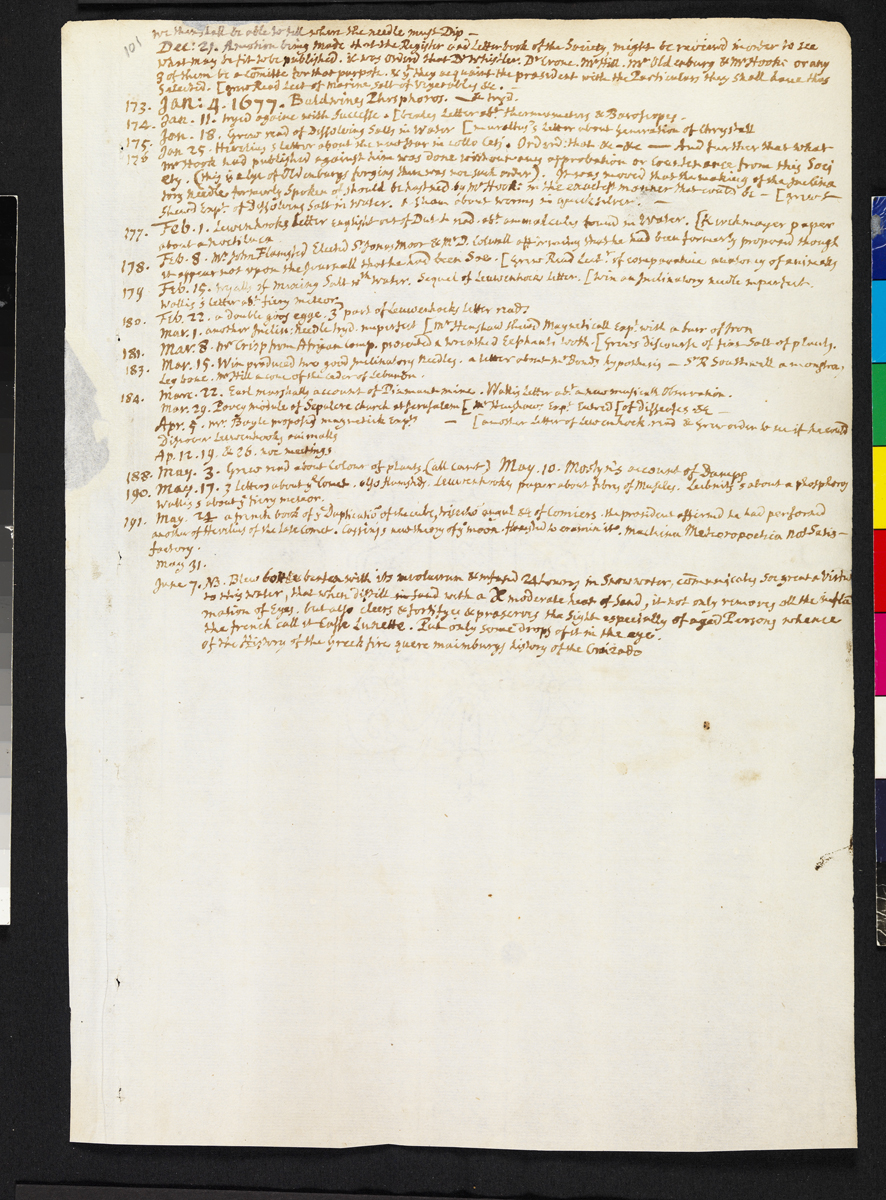 101
we then shall be able to tell where the needle must Dip —
Dec: 21. A motion being made that the Register and Letter book of the Society, might be reviewd in order to see
what may be fit to be published. it was orderd that Dr Whistler. Dr Crone. Mr Hill. Mr Oldenburg & Mr Hooke or any
3 of them be a comitte for that purpose. & yt they acquaint the president with the Particulars they shall have thus
Selected. [grew Read Lect of marine Salt of Vegetables &c. —
173. Jan: 4. 1677. Baldwines Phosphoros. — & tryd.
174. Jan. 11. tryed againe with Successe. [beales Letter abt thermometers & Baroscopes.
175. Jan. 18. Grew read of Dissolving Salts in Water [muraltus's Letter about generation of Chrystall
176 Jan 25. Hevelius's letter about the new star in collo Ceti. Orderd: that &c &c — And further that what
Mr Hook had published against him was done without any approbation or Countenance from this Soci
ety. (this is a lye of Oldenburgs forging there was noe such order). It was moved that the making of the Inclina
tory needle formerly Spoken of should be hastned by Mr Hook in the exactest manner that could be — [grew
Shewd Expt. of dissolving Salt in water. A Sham about worms in quicksilver. —
177. Feb. 1. Lewenhooks Letter english out of Dutch read. abt animalcules found in Water. [Kirchmayer paper
about a noctiluca.
178. Feb. 8. Mr John Flamsted Elected Sr Jonas Moor & Mr D. Colwall affirming that he had been formerly proposd though
it appear not upon the Journall that he had been Soe. [Grew Read Lect. of comparative anatomy of animalls
179 Feb. 15. tryalls of mixing Salt wth Water. Sequel of Leuwenhoeck Letter. [Win an Inclinatory needle imperfect.
Wallis's letter abt fiery meteor.
180. Feb. 22. a double goos egge. 3d part of Leuwenhocks Letter read.
Mar. 1. another Inclin: Needle tryd. imperfect [Mr Henshaw shewd Magneticall Expt with a burr of Iron
181. Mar. 8. Mr Crisp from African comp. presented a wreathed Elephants tooth. [Grews discourse of fixt Salt of plants.
183. Mar. 15. Win produced two good Inclinatory Needles. a letter about Mr Bonds hypothesis — Sr R Southwell a monstrous
Leg bone. Mr Hill a cone of the cedar of Lebanon.
184. Marc. 22. Earl marshalls account of Diamant mine. Wallis Letter abt a new musicall Observation.
Mar. 29. Povey module of Sepulcre church at Jerusalem [Mr Henshaws Expt Entred [of diffeases &c —
Apr. 5. mr. Boyle proposed magnetick Expts — [another Letter of Lewenhock read & Grew order to see if he could
Discover Leuwenhooks animalls
Ap. 12. 19. & 26. noe meetings
188. May. 3. Grew read about Colour of plants (all Cant) May. 10. Mostyn's account of Damps
190. May. 17. 3 letters about ye Comet. also flamsteds. Leeuwenhookes paper about fibres of Muscles. Leibnitz's about a phosphorus
Wallis's about ye fiery meteor.
191. May. 24 a french book of ye Duplicatio of the cube, trisectio anguli &c of Comiers. the president affirmed he had performd
another of Hevelius of the Late Comet. Cassini's new theory of ye moon. Hooks'd to examin it. machina Meteoropoetica not Satis-
factory.
May 31.
June 7. NB. Blew bottle beaten with its involucrum & infused 24 hours in Snow water, communicates Soe great a Virtue
to this water, that when distilld in Sand with a moderate heat of Sand, it not only removes all the infla
mation of Eyes. but also cleers & fortifyes & preserves the Sight especially of aged Persons whence
the french call it Casse Lunette. Put only some drops of it in the eye.
of the History of the Greek fire quere maimburgs history of the Croizado